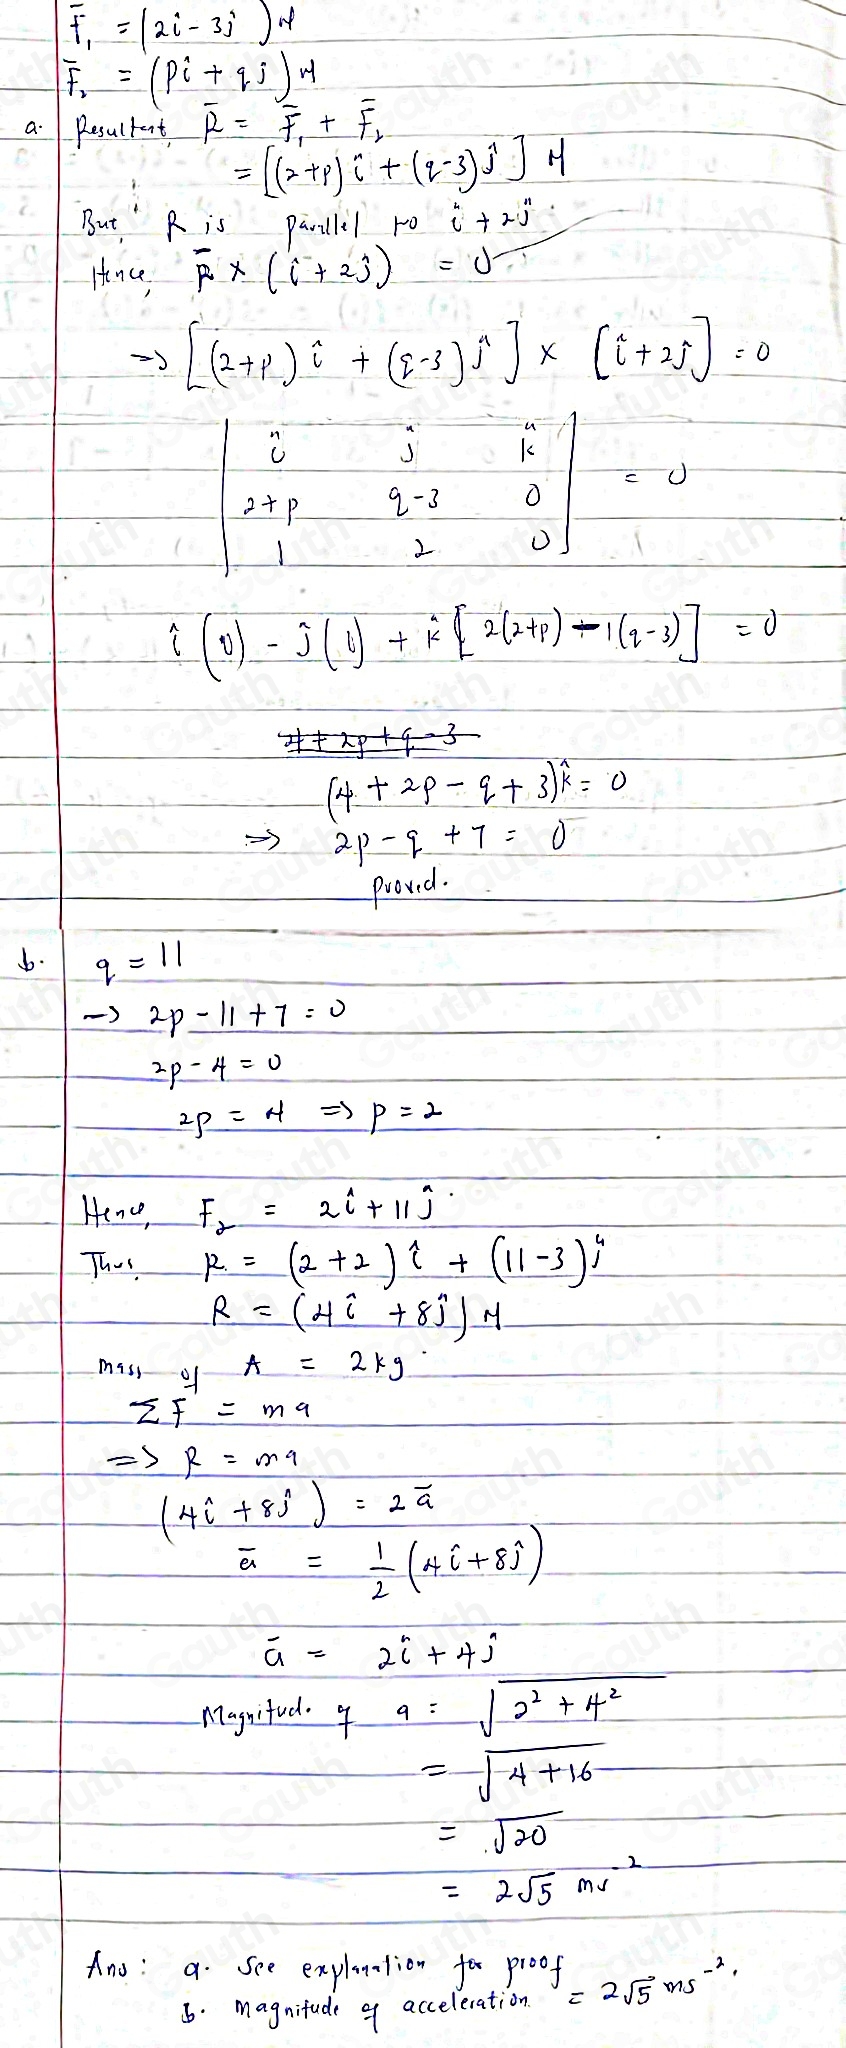 F̄₁ = (2î - 3ĵ) N
F̄₂ = (pî + qĵ) N
a. Resultant, R̄ = F̄₁ + F̄₂
= [(2+p) î + (q-3) ĵ] N
But, R is parallel to î + 2ĵ
Hence, R̄ × (î + 2ĵ) = 0
=> [(2+p) î + (q-3) ĵ] × [î + 2ĵ] = 0
| î ĵ k̂ |
| 2+p q-3 0 | = 0
| 1 2 0 |
î (0) - ĵ (0) + k̂ [2(2+p) - 1(q-3)] = 0
4 + 2p + q - 3
(4 + 2p - q + 3) k̂ = 0
=> 2p - q + 7 = 0
proved.
b. q = 11
-> 2p - 11 + 7 = 0
2p - 4 = 0
2p = 4 => p = 2
Hence, F₂ = 2î + 11ĵ
Thus, R = (2+2) î + (11-3) ĵ
R = (4î + 8ĵ) N
mass of A = 2kg
ΣF = ma
=> R = ma
(4î + 8ĵ) = 2ā
ā = 1/2 (4î + 8ĵ)
ā = 2î + 4ĵ
Magnitude of a = √(2² + 4²)
= √(4 + 16)
= √20
= 2√5 ms⁻²
Ans: a. See explanation for proof
b. Magnitude of acceleration = 2√5 ms⁻².